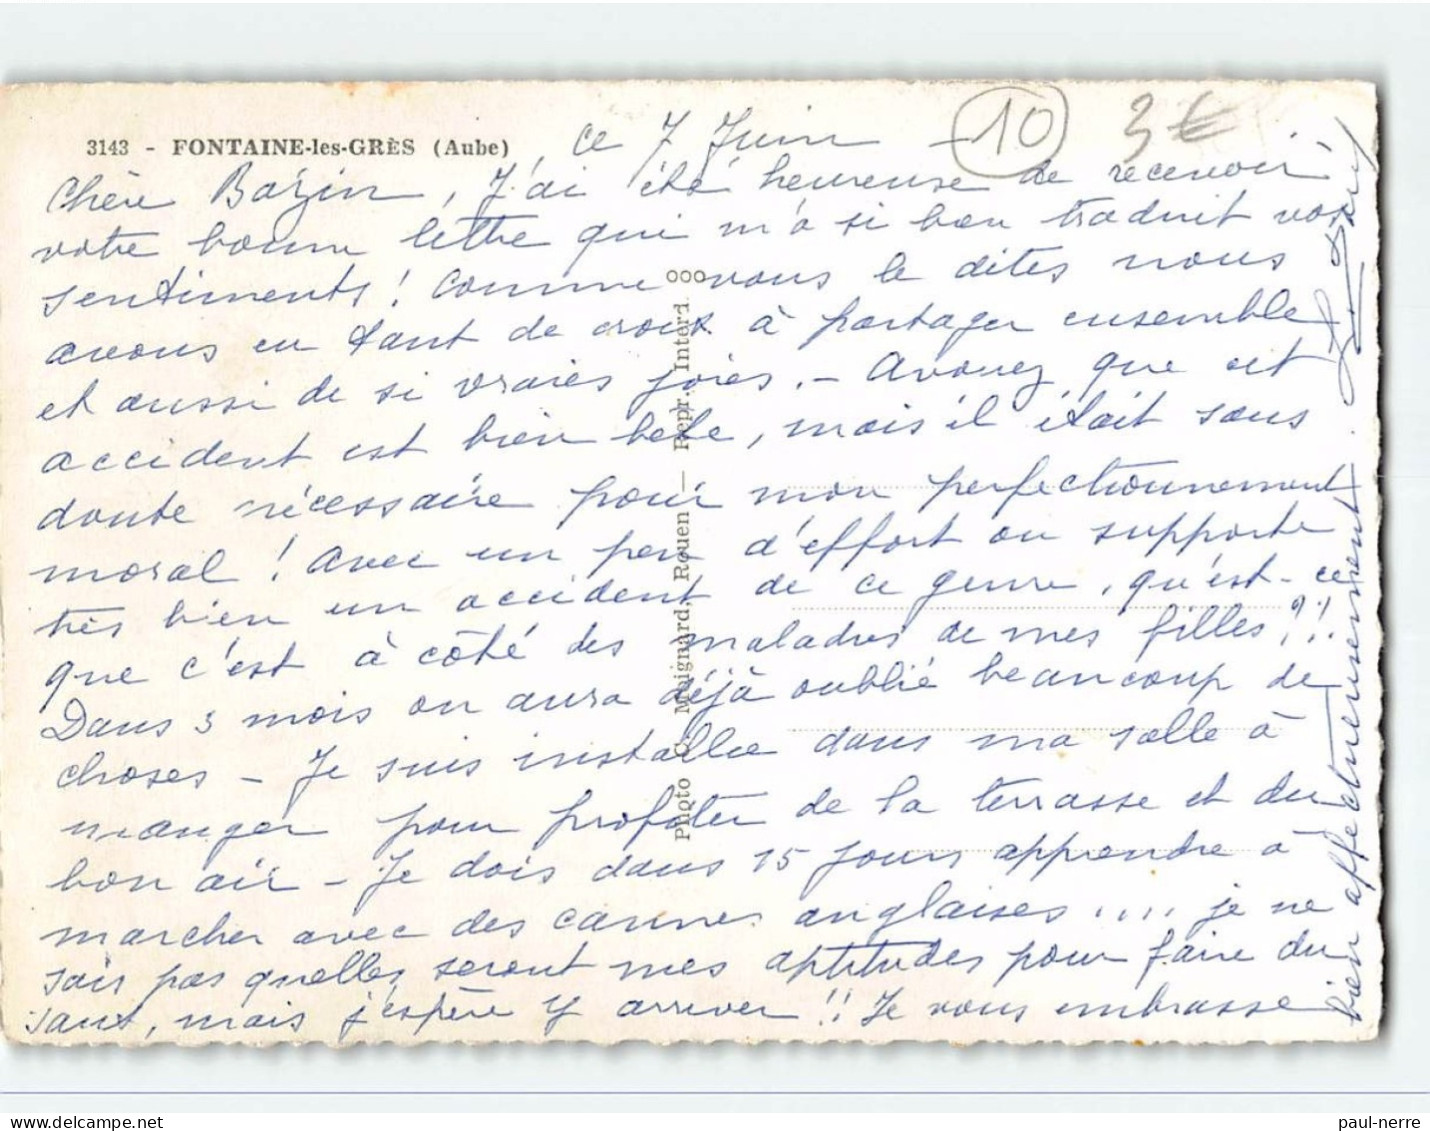 3143 - FONTAINE-les-GRÈS (Aube)
ce 7 Juin -
10
3€
Chère Bazin, J'ai été heureuse de recevoir
votre bonne lettre qui m'a si bien traduit vos
sentiments ! Comme vous le dites nous
avons eu tant de croix à partager ensemble
et aussi de si vraies joies. - Avouez que cet
accident est bien bête, mais il était sans
doute nécessaire pour mon perfectionnement
moral ! Avec un peu d'effort on supporte
très bien un accident de ce genre, qu'est-ce
que c'est à côté des maladies de mes filles ?!!
Dans 3 mois on aura déjà oublié beaucoup de
choses - Je suis installée dans ma salle à
manger pour profiter de la terrasse et du
bon air - Je dois dans 15 jours apprendre à
marcher avec des cannes anglaises .... je ne
sais pas quelles seront mes aptitudes pour faire du
saut, mais j'espère y arriver !! Je vous embrasse
bien affectueusement.
Photo C. Moignard, Rouen — Repr. Interd.
paul-nerre